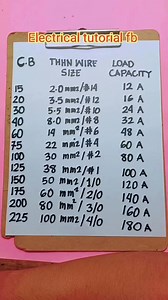 Electrical tutorial fb
C.B THHN WIRE SIZE LOAD CAPACITY
15 2.0 mm2/#14 12 A
20 3.5 mm2/#12 16 A
30 5.5 mm2/#10 24 A
40 8.0 mm2/#8 32 A
60 14 mm²/#6 48 A
75 22 mm²/#4 60 A
100 30 mm²/#2 80 A
125 38 mm2/#1 100 A
150 50 mm2/1/0 120 A
175 60 mm²/2/0 140 A
200 80 mm²/3/0 160 A
225 100 mm2/4/0 180 A